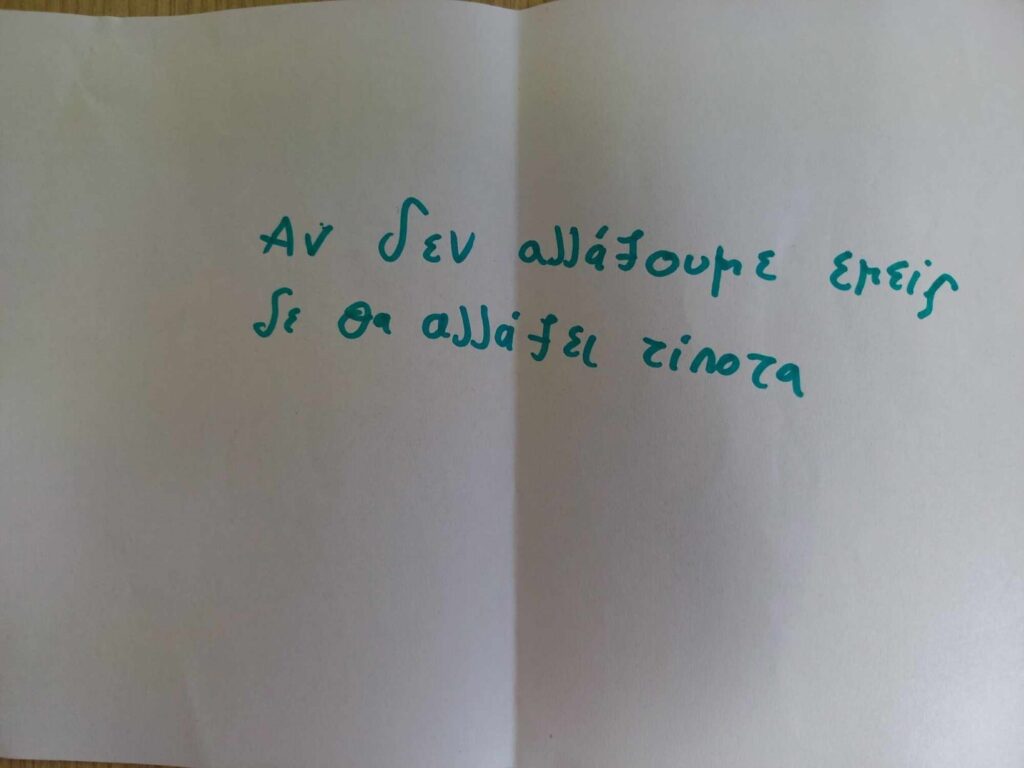 Αν δεν αλλάξουμε εμείς
δε θα αλλάξει τίποτα